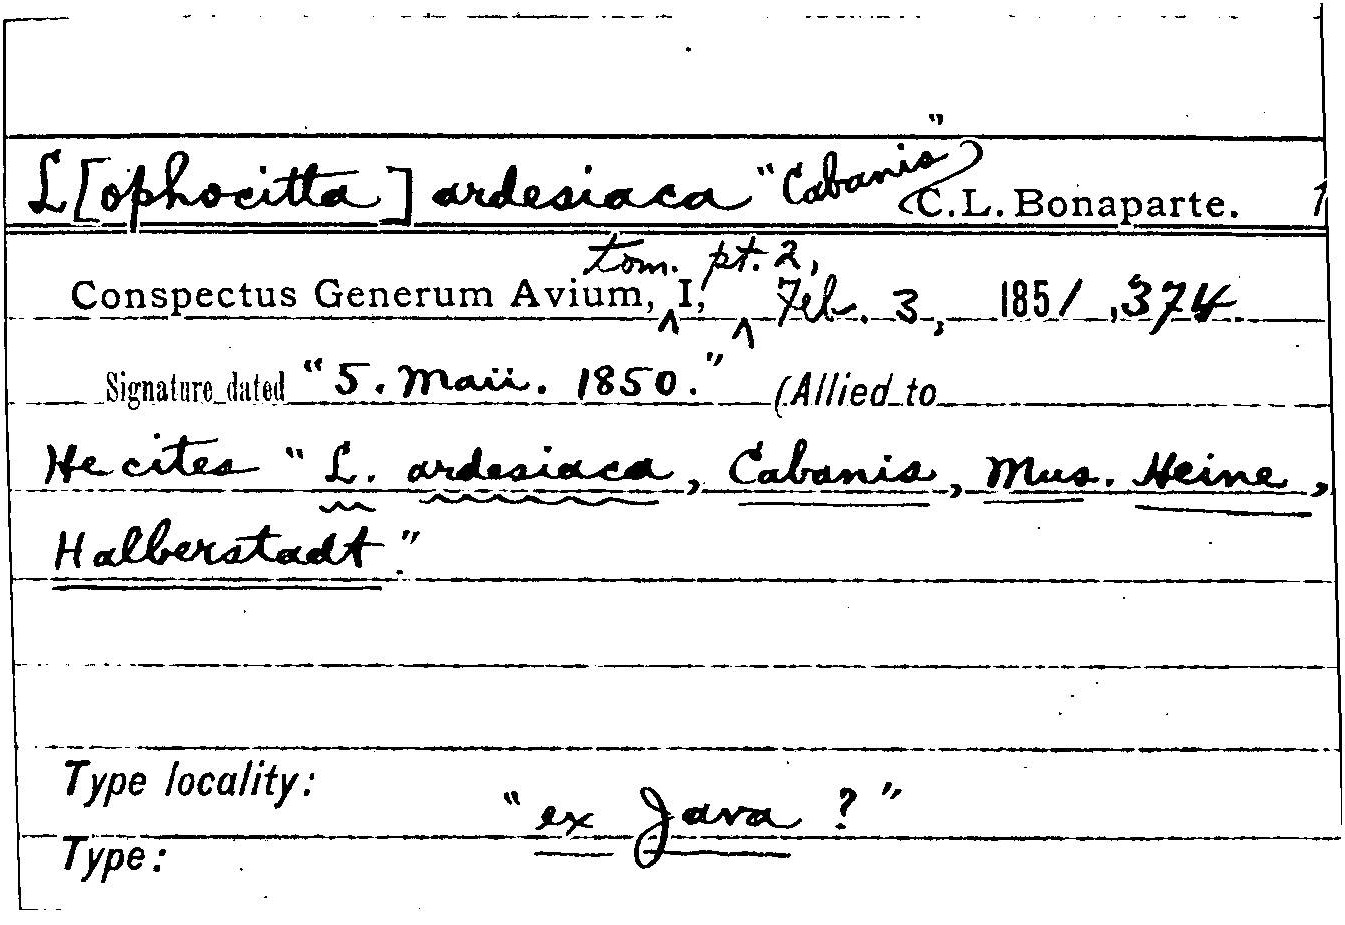 L[ophocitta] ardesiaca "Cabanis" (C.L. Bonaparte. 1
Conspectus Generum Avium, tom. I, pt. 2, Feb. 3, 1851, 374.
Signature dated "5. Maii. 1850." (Allied to
He cites "L. ardesiaca, Cabanis, Mus. Heine,
Halberstadt."
Type locality:
"ex Java ?"
Type: